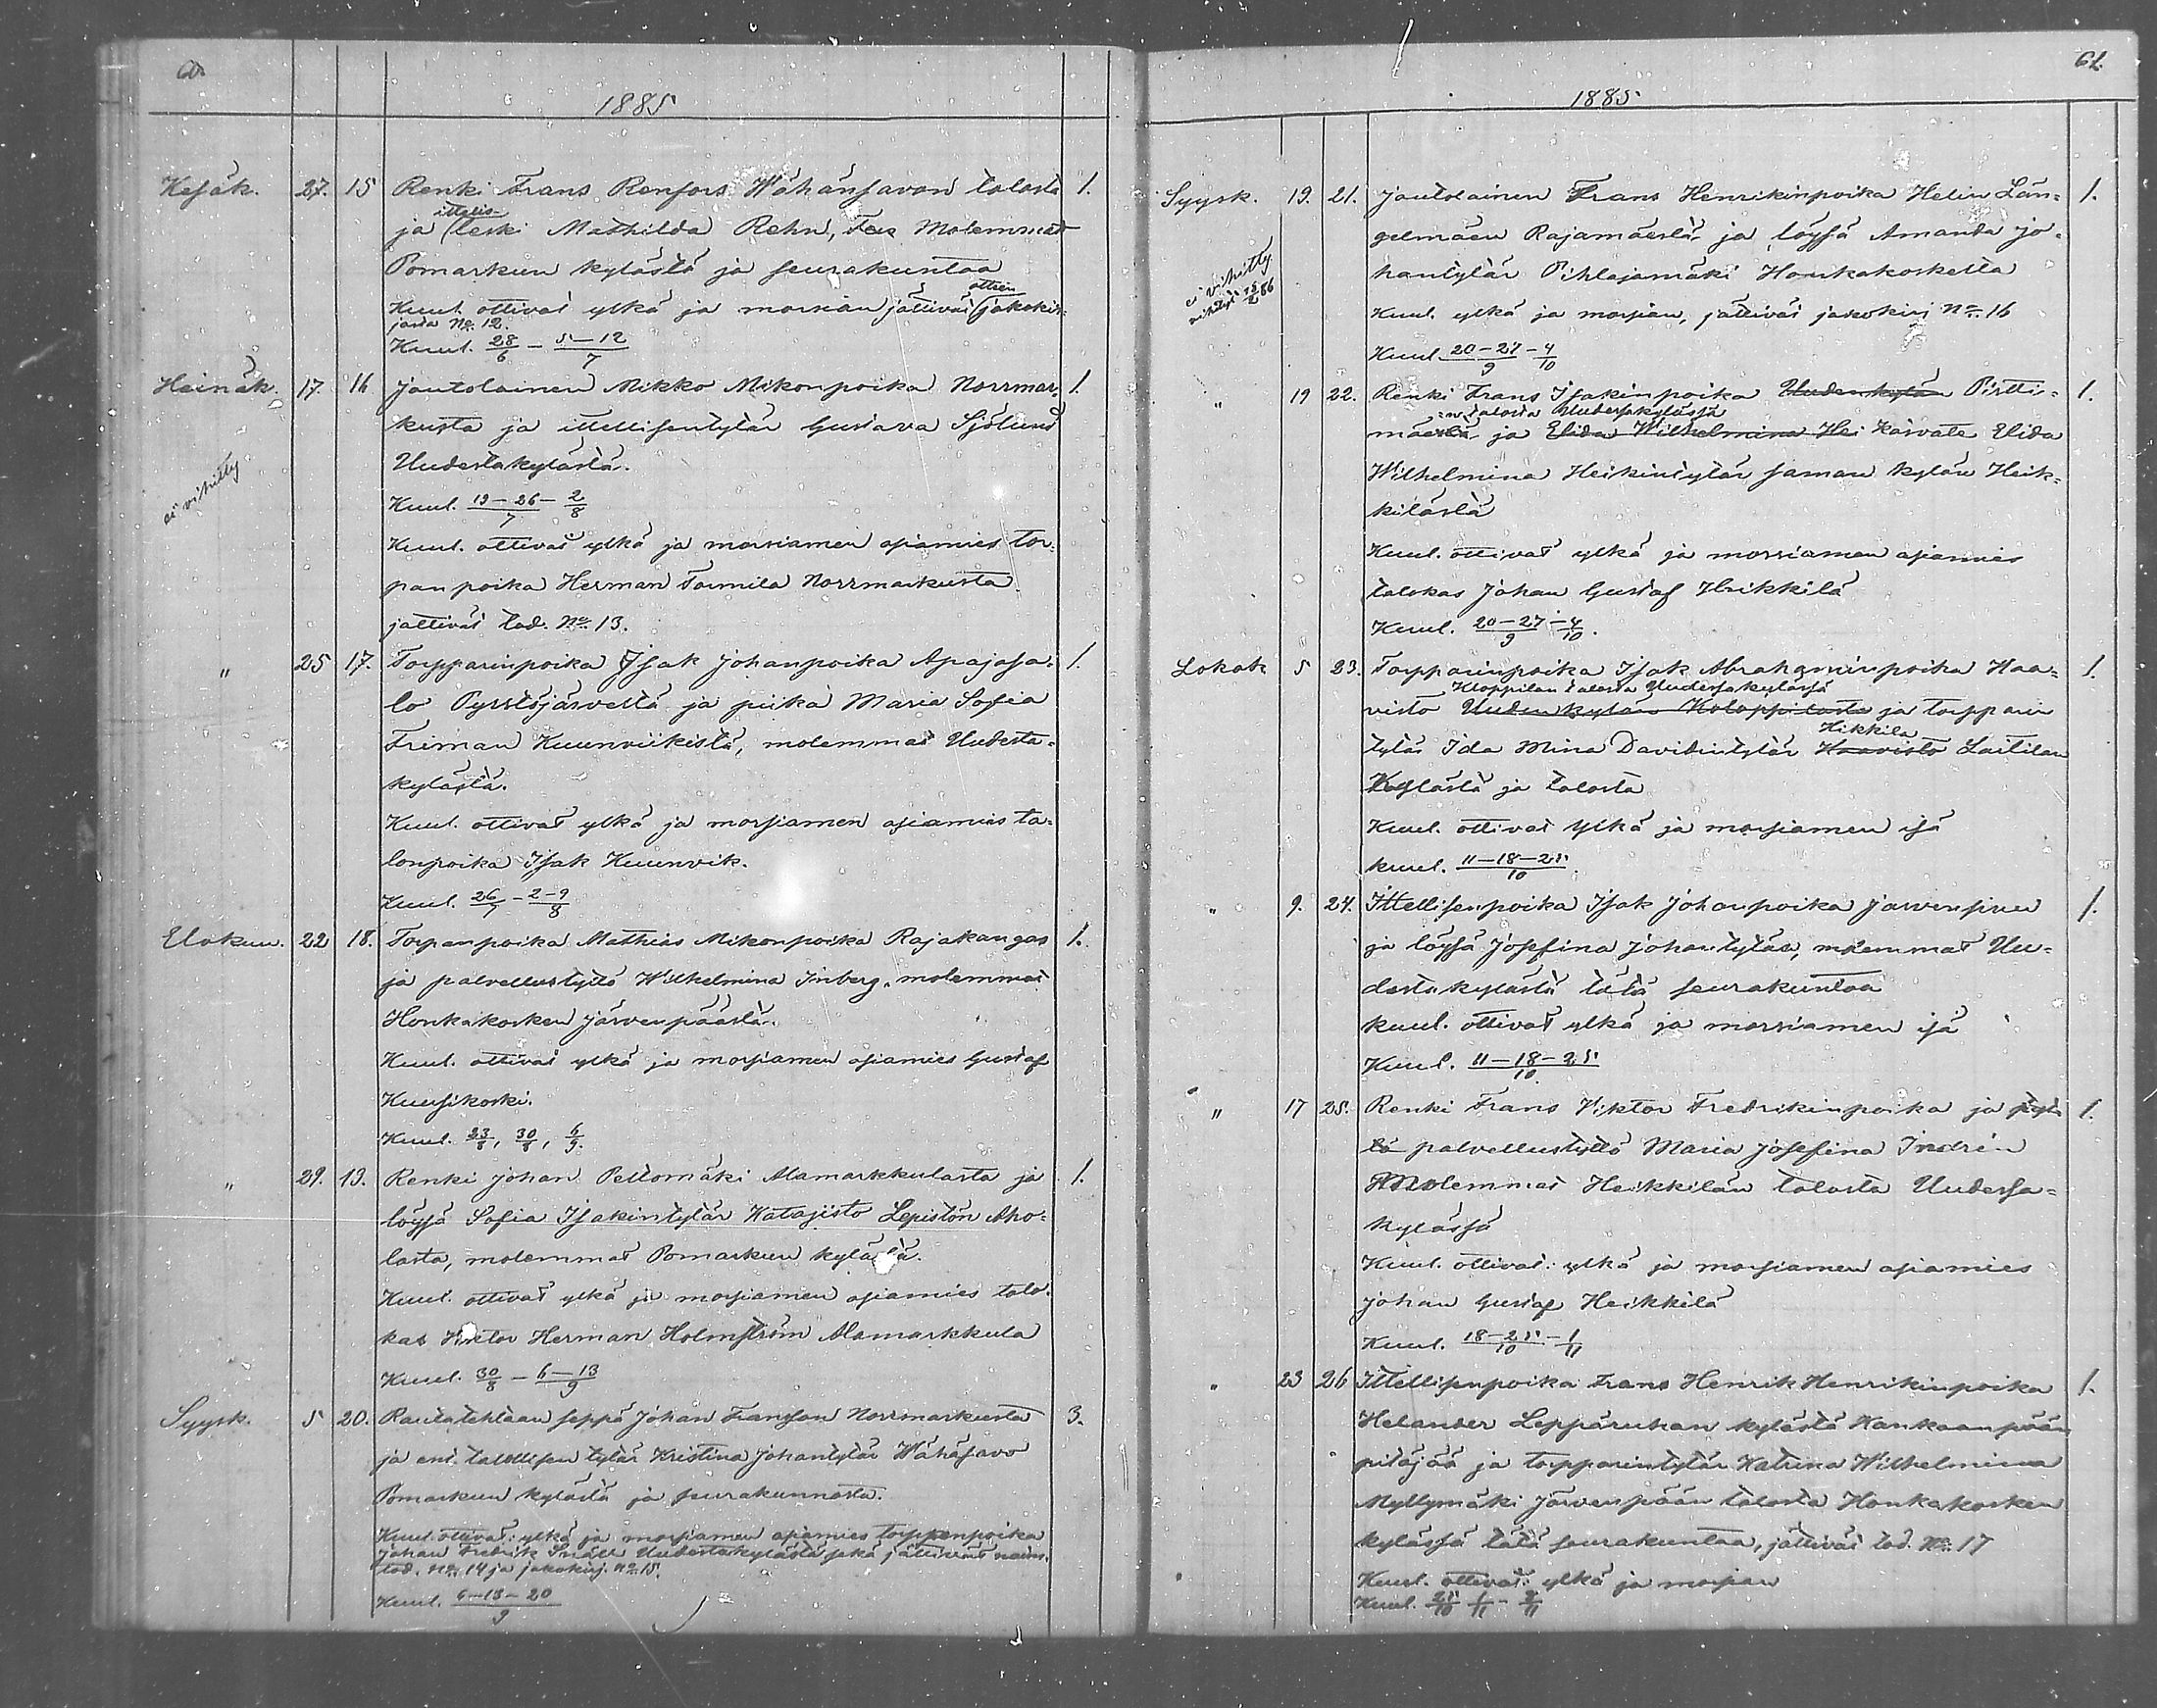 60
1885
Kesäk. 27. 15 Renki Frans Renfors Wähänsavon talosta 1.
ittellis-
ja leski Mathilda Rehn, Molemmat
Pomarkun kylästä ja seurakuntaa
otteen
Kuul. ottivat ylkä ja morsian jättivät jakokir-
jasta No. 12.
Kuul. 28/6 - 5-12/7
Heinäk. 17. 16 Jautolainen Mikko Mikonpoika Norrmar- 1.
kusta ja ittellisentytär Gustava Sjölund
Uudestakylästä.
ei vihitty
Kuul. 19-26/7 - 2/8
Kuul. ottivat ylkä ja morsiamen asiamies tor-
panpoika Herman Tommila Norrmarkusta
jättivät tod. No. 13.
" 25 17. Torpparinpoika Isak Johanpoika Apajasa- 1.
lo Pyssläjärveltä ja piika Maria Sofia
Friman Kuunviikistä, molemmat Uudesta-
kylästä.
Kuul. ottivat ylkä ja morsiamen asiamies ta-
lonpoika Isak Kuunvik.
Kuul. 26/7 - 2-9/8
Elokuu. 22 18. Torpanpoika Mathias Mikonpoika Rajakangas 1.
ja palvellustyttö Wilhelmina Inberg, molemmat
Honkakosken Järvenpäästä.
Kuul. ottivat ylkä ja morsiamen asiamies Gustaf
Kuusikoski.
Kuul. 23/8, 30/8, 6/9.
" 29. 19. Renki Johan Peltomäki Alamarkkulasta ja 1.
löysä Sofia Isakintytär Katajisto Lepistön Aho-
lasta, molemmat Pomarkun kylästä.
Kuul. ottivat ylkä ja morsiamen asiamies talo-
kas Viktor Herman Holmström Alamarkkula
Kuul. 30/8 - 6-13/9
Syysk. 5 20. Rautatehtaan seppä Johan Fransson Norrmarkusta 3.
ja ent. talollisen tytär Kristina Johantytär Wähäsavo
Pomarkun kylästä ja seurakunnasta.
Kuul. ottivat: ylkä ja morsiamen asiamies torppanpoika
Johan Fredrik Snäll Uudestakylästä sekä jättivät naim.
tod. No. 14 ja jakokirj. No. 15.
Kuul. 6-13-20/9
61.
1885
Syysk. 19. 21. Jautolainen Frans Henrikinpoika Helin Län- 1.
gelmäen Rajamäestä ja löysä Amanda Jo-
hantytär Pihlajamäki Honkakoskelta
ei vihitty.
vihityt 15/2 86
Kuul. ylkä ja morsian, jättivät jakokirj No. 16
Kuul. 20-27/9 - 4/10
" 19 22. Renki Frans Isakinpoika Uudenkylän Pirtti- 1.
-n talosta Uudessakylässä
mäe ja Elida Wilhelmina Hei Kasvate Elida
Wilhelmina Heikintytär saman kylän Heik-
kilästä
Kuul. ottivat ylkä ja morsiamen asiamies
talokas Johan Gustaf Heikkilä
Kuul. 20-27/9 - 4/10.
Lokak 5 23. Torpparinpoika Isak Abrahaminpoika Haa- 1.
Kloppilan talosta Uudessakylässä
visto Uudenkylän Koloppilasta ja torpparin
Hikkila
tytär Ida Mina Davidintytär Haavisto Laitilan
Kylästä ja talosta
Kuul. ottivat ylkä ja morsiamen isä
Kuul. 11-18-25/10.
" 9. 24. Ittellisenpoika Isak Johanpoika Järvensivu 1.
ja löysä Josefina Johantytär, molemmat Uu-
destakylästä tätä seurakuntaa
Kuul. ottivat ylkä ja morsiamen isä
Kuul. 11-18-25/10.
" 17 25. Renki Frans Viktor Fredrikinpoika ja 1.
palvellustyttö Maria Josefina Indrén
Molemmat Heikkilän talosta Uudessa-
kylässä
Kuul. ottivat: ylkä ja morsiamen asiamies
Johan Gustaf Heikkilä
Kuul. 18-25/10 - 1/11
" 23 26 Ittellisenpoika Frans Henrik Henrikinpoika 1.
Helander Leppäruhan kylästä Kankaanpään
pitäjää ja torpparintytär Katrina Wilhelmina
Myllymäki Järvenpään talosta Honkakosken
kylässä tätä seurakuntaa, jättivät tod. No. 17
Kuul. ottivat: ylkä ja morsian
Kuul. 25/10 1/11 - 8/11